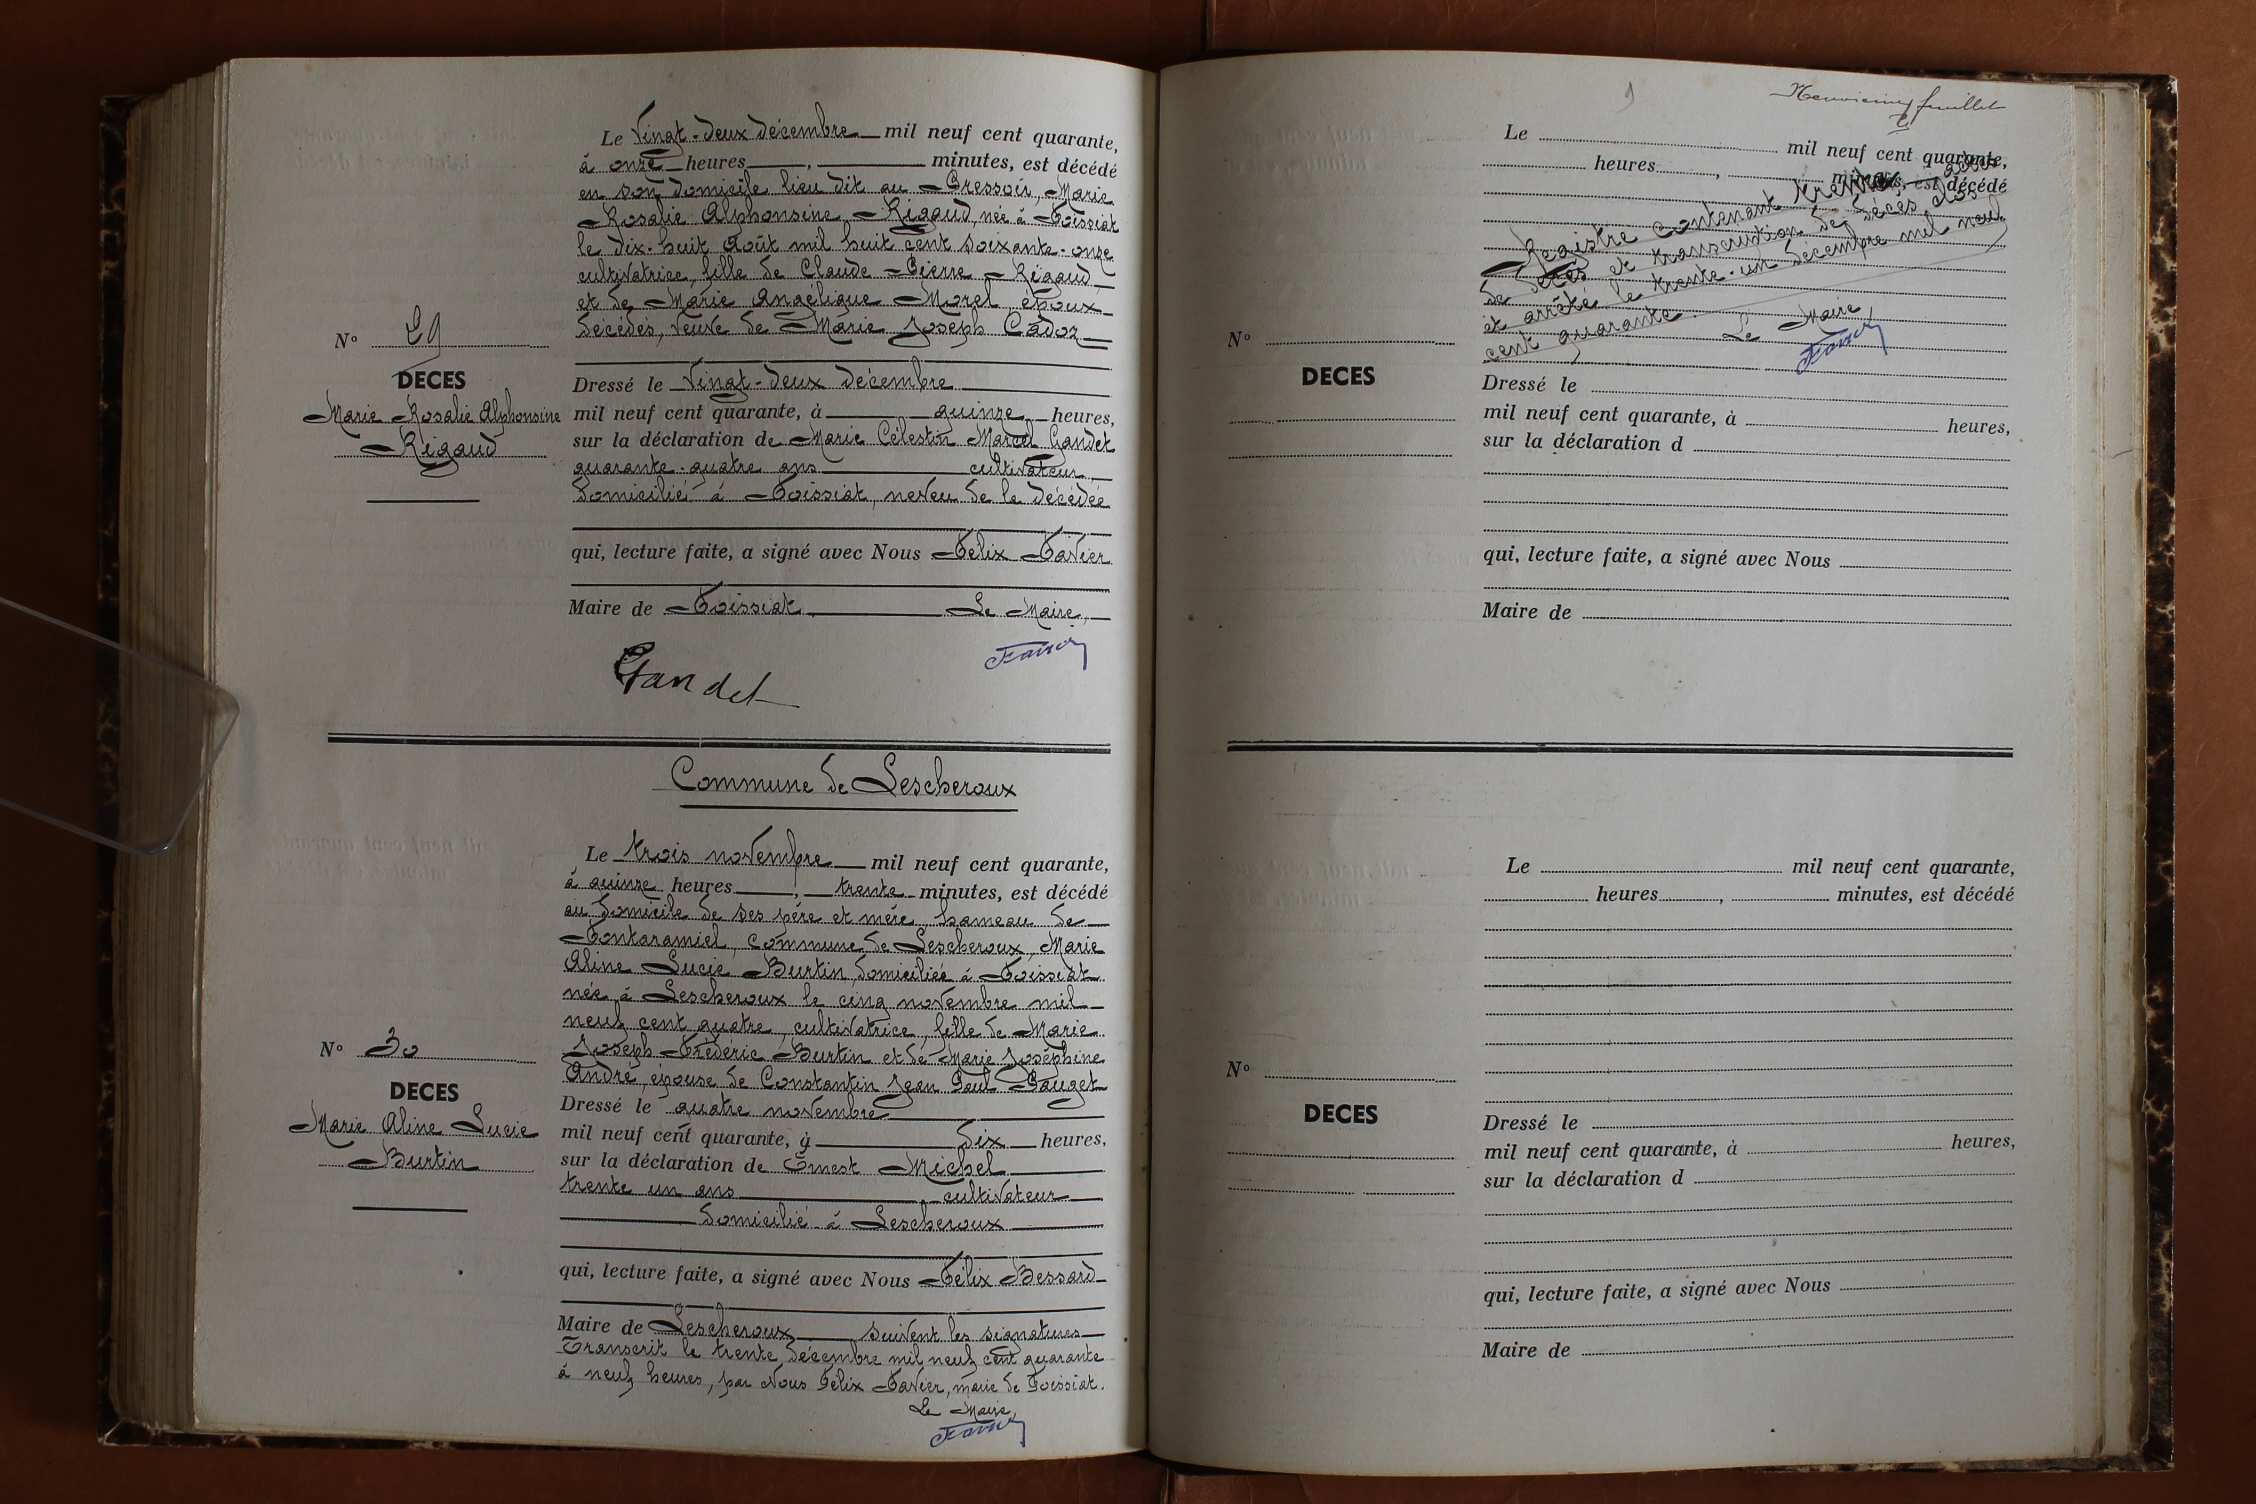 Le Vingt-deux décembre mil neuf cent quarante,
à onze heures , minutes, est décédé
en son domicile lieu dit au Pressoir, Marie
Rosalie Alphonsine Rigaud, née à Foissiat
le dix-huit Août mil huit cent soixante-onze
cultivatrice, fille de Claude Pierre Rigaud
et de Marie Angélique Morel, époux
décédés, veuve de Marie Joseph Cadoz
N° 29
DECES
Marie Rosalie Alphonsine
Rigaud
Dressé le Vingt-deux décembre
mil neuf cent quarante, à quinze heures,
sur la déclaration de Marie Célestin Marcel Gandet
quarante-quatre ans cultivateur,
domicilié à Foissiat, neveu de la décédée
qui, lecture faite, a signé avec Nous Félix Favier
Maire de Foissiat Le Maire,
Gandet
Favier
Commune de Lescheroux
Le trois novembre mil neuf cent quarante,
à quinze heures , trente minutes, est décédé
au domicile de ses père et mère, hameau de
Fontaramiel, commune de Lescheroux, Marie
Aline Lucie Burtin, domiciliée à Foissiat
née à Lescheroux le cinq novembre mil
neuf cent quatre, cultivatrice, fille de Marie
Joseph Frédéric Burtin et de Marie Joséphine
André, épouse de Constantin Jean Paul Pauget
N° 30
DECES
Marie Aline Lucie
Burtin
Dressé le quatre novembre
mil neuf cent quarante, à dix heures,
sur la déclaration de Ernest Michel
trente un ans cultivateur
domicilié à Lescheroux
qui, lecture faite, a signé avec Nous Félix Bessard
Maire de Lescheroux suivent les signatures
Transcrit le trente décembre mil neuf cent quarante
à neuf heures, par Nous Félix Favier, maire de Foissiat.
Le Maire,
Favier
9
Neuvième feuillet
Le mil neuf cent quarante,
heures , minutes, est décédé
Registre contenant trente actes
de décès et transcription de décès clos
et arrêté le trente-un décembre mil neuf
cent quarante. Le Maire,
Favier
N°
DECES
Dressé le
mil neuf cent quarante, à heures,
sur la déclaration d
qui, lecture faite, a signé avec Nous
Maire de
Le mil neuf cent quarante,
heures , minutes, est décédé
N°
DECES
Dressé le
mil neuf cent quarante, à heures,
sur la déclaration d
qui, lecture faite, a signé avec Nous
Maire de